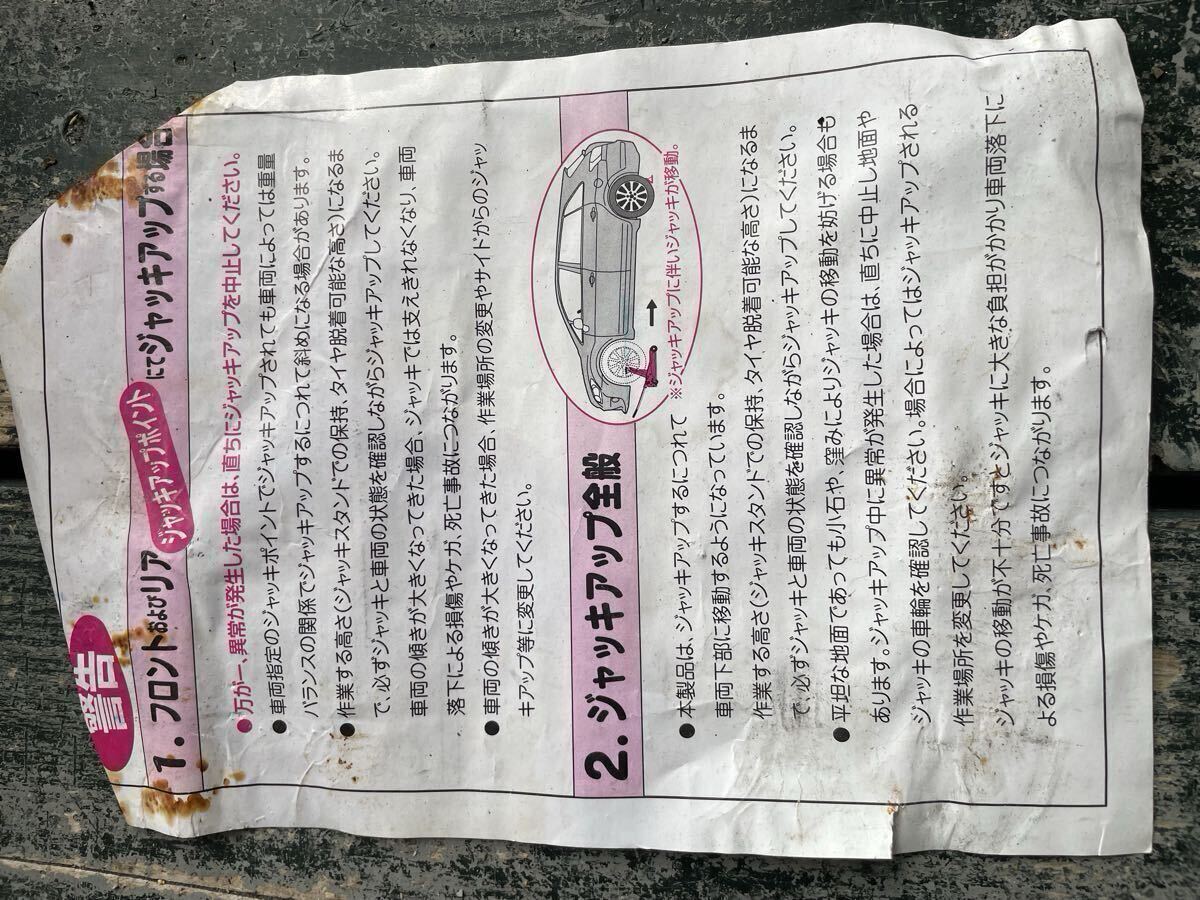 警告
1. フロントおよびリア ジャッキアップポイント にてジャッキアップする場合
●万が一、異常が発生した場合は、直ちにジャッキアップを中止してください。
●車両指定のジャッキポイントでジャッキアップされても車両によっては重量
バランスの関係でジャッキアップするにつれて斜めになる場合があります。
●作業する高さ(ジャッキスタンドでの保持、タイヤ脱着可能な高さ)になるま
で、必ずジャッキと車両の状態を確認しながらジャッキアップしてください。
車両の傾きが大きくなってきた場合、ジャッキでは支えきれなくなり、車両
落下による損傷やケガ、死亡事故につながります。
●車両の傾きが大きくなってきた場合、作業場所の変更やサイドからのジャッ
キアップ等に変更してください。
2. ジャッキアップ全般
※ジャッキアップに伴いジャッキが移動。
●本製品は、ジャッキアップするにつれて
車両下部に移動するようになっています。
作業する高さ(ジャッキスタンドでの保持、タイヤ脱着可能な高さ)になるま
で、必ずジャッキと車両の状態を確認しながらジャッキアップしてください。
●平坦な地面であっても小石や、窪みによりジャッキの移動を妨げる場合も
あります。ジャッキアップ中に異常が発生した場合は、直ちに中止し地面や
ジャッキの車輪を確認してください。場合によってはジャッキアップされる
作業場所を変更してください。
ジャッキの移動が不十分ですとジャッキに大きな負担がかかり車両落下に
よる損傷やケガ、死亡事故につながります。